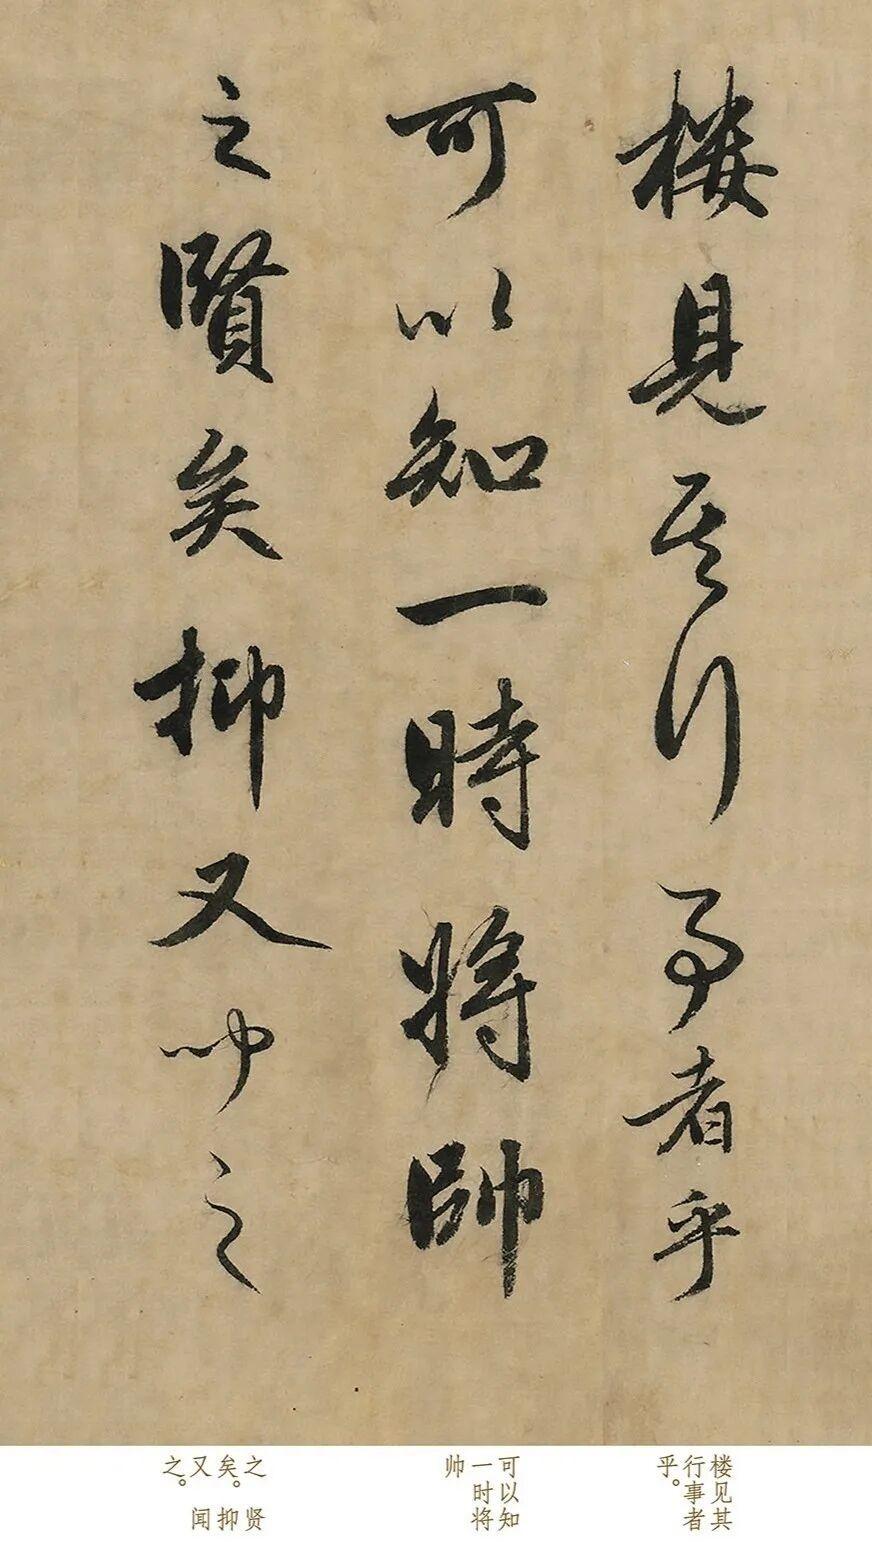 楼見其行事者乎
可以知一時將帥
之賢矣抑又聞之
楼见其
行事者
乎。
可以知
一时将
帅
之贤
矣。抑
又闻
之。